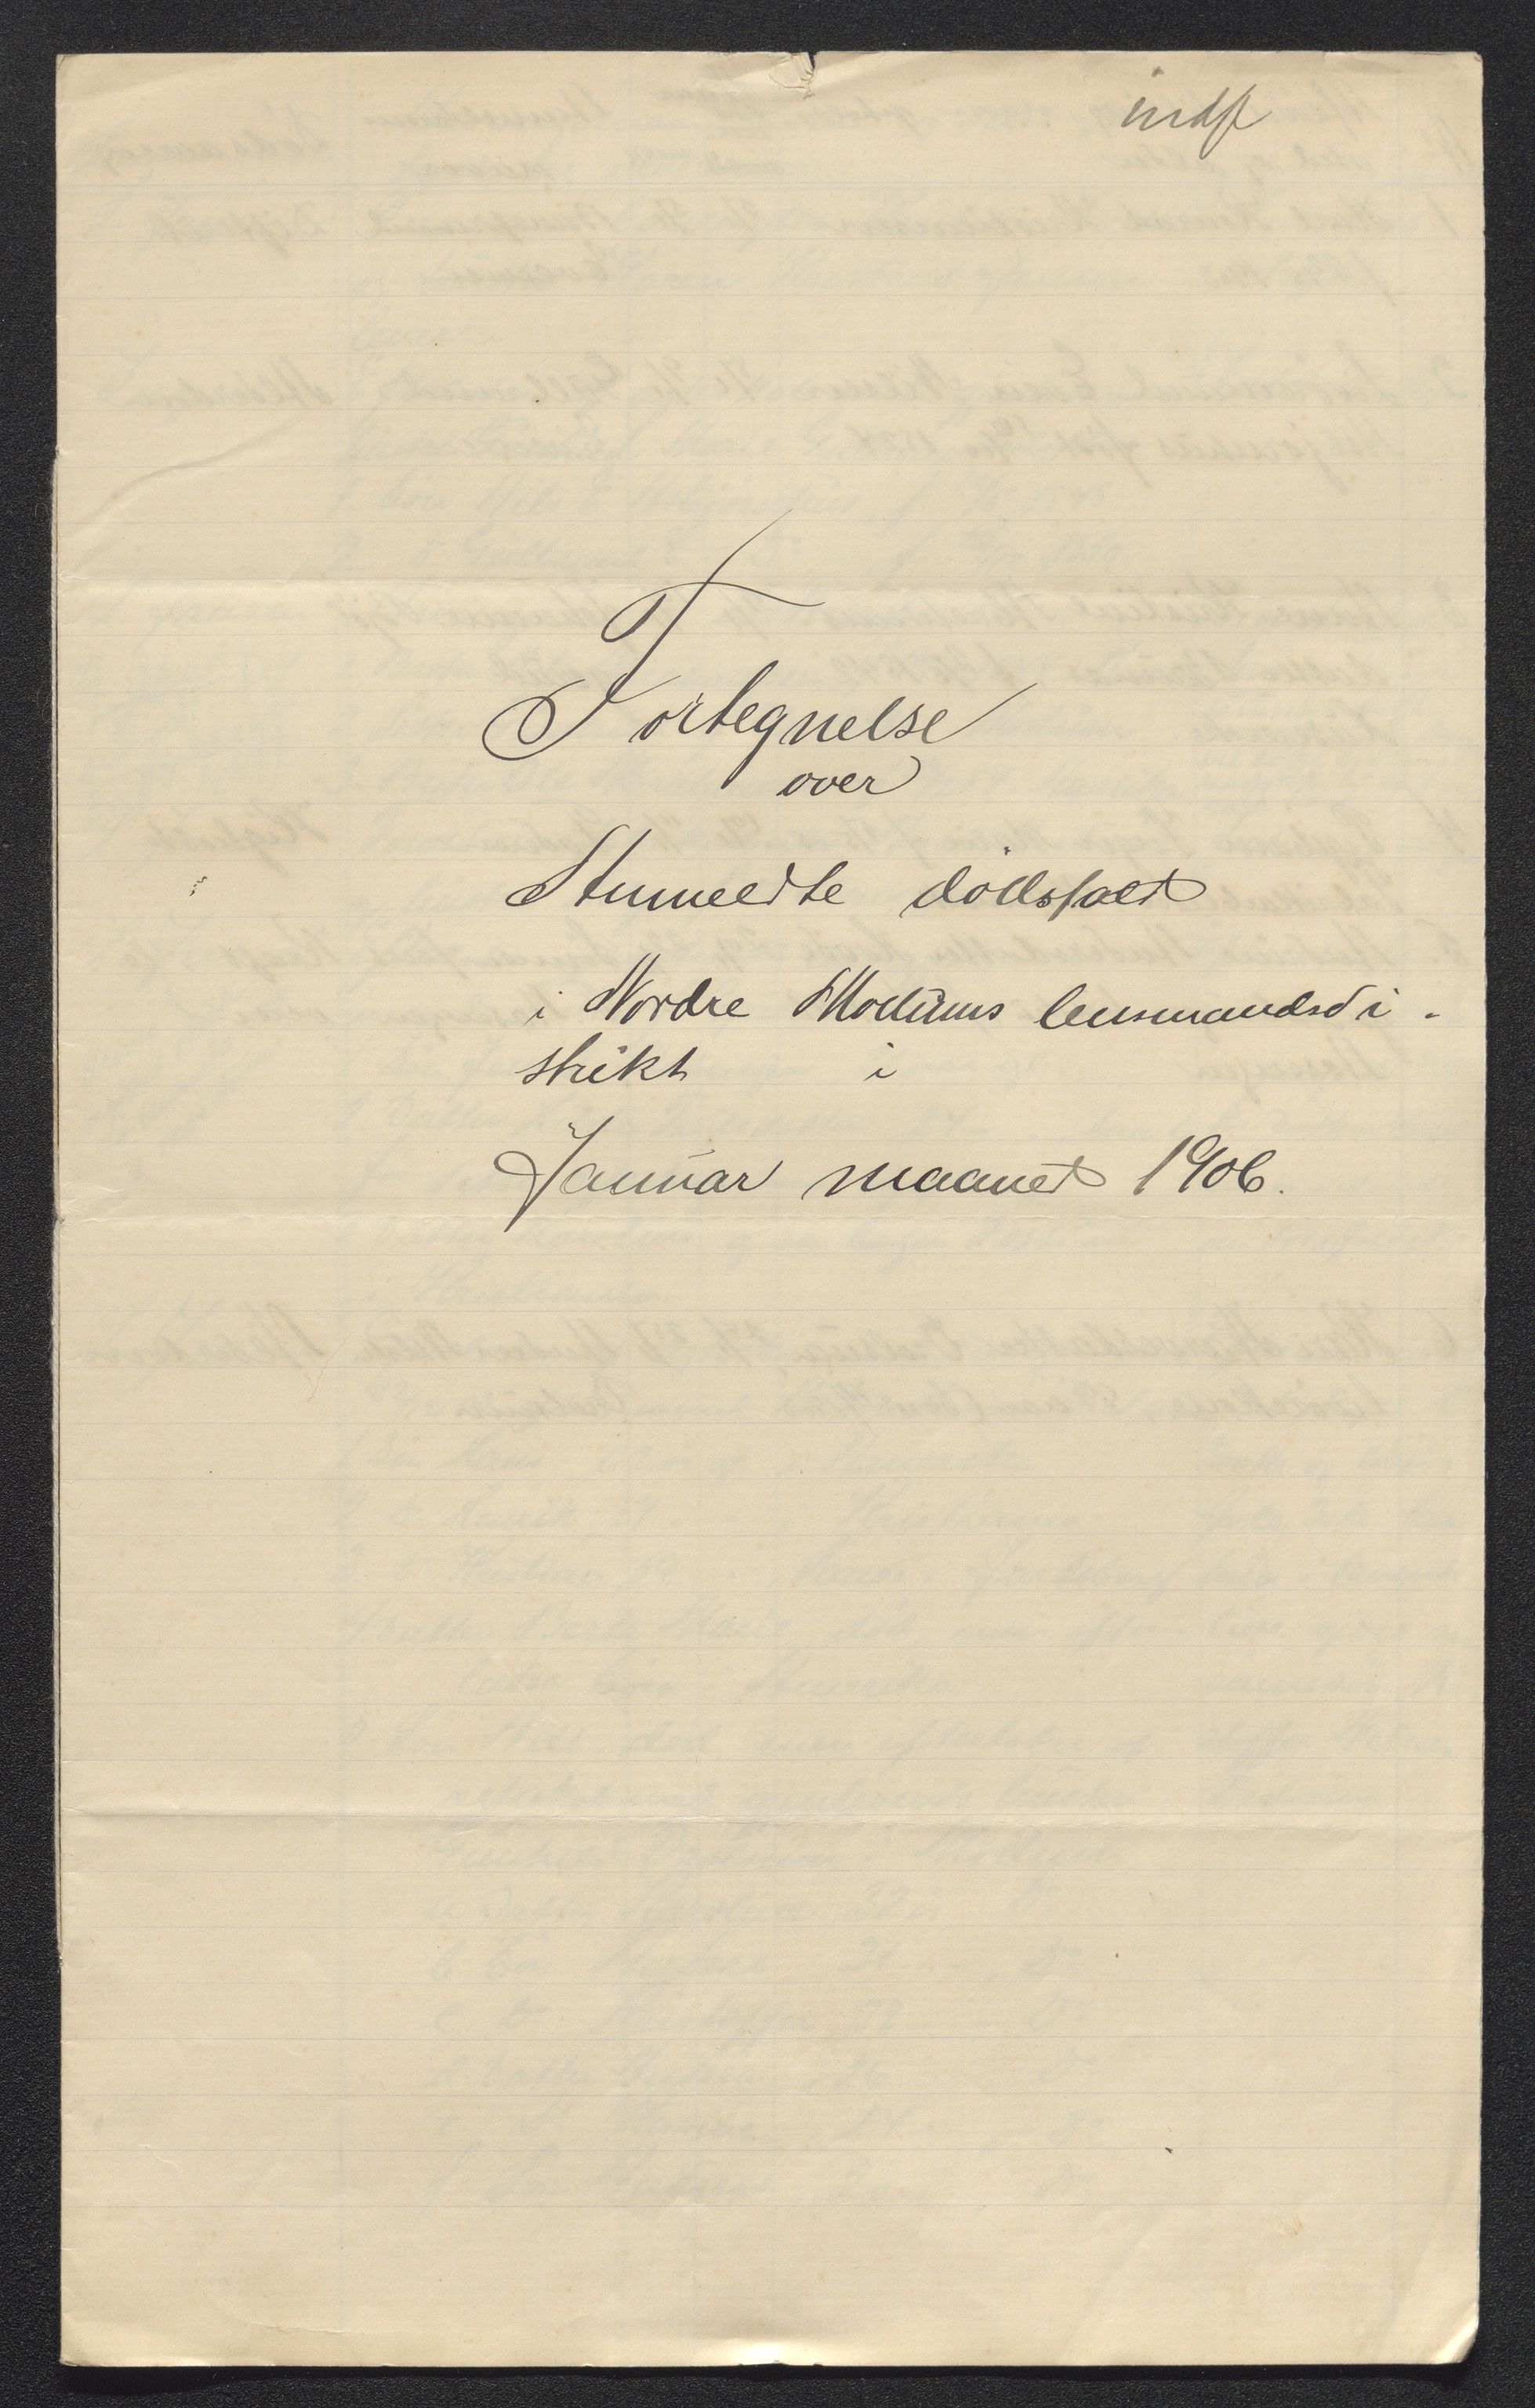 indf
Fortegnelse
over
Anmeldte dödsfald
i Nordre Modums lensmandsdi-
strikt i
Januar maaned 1906.